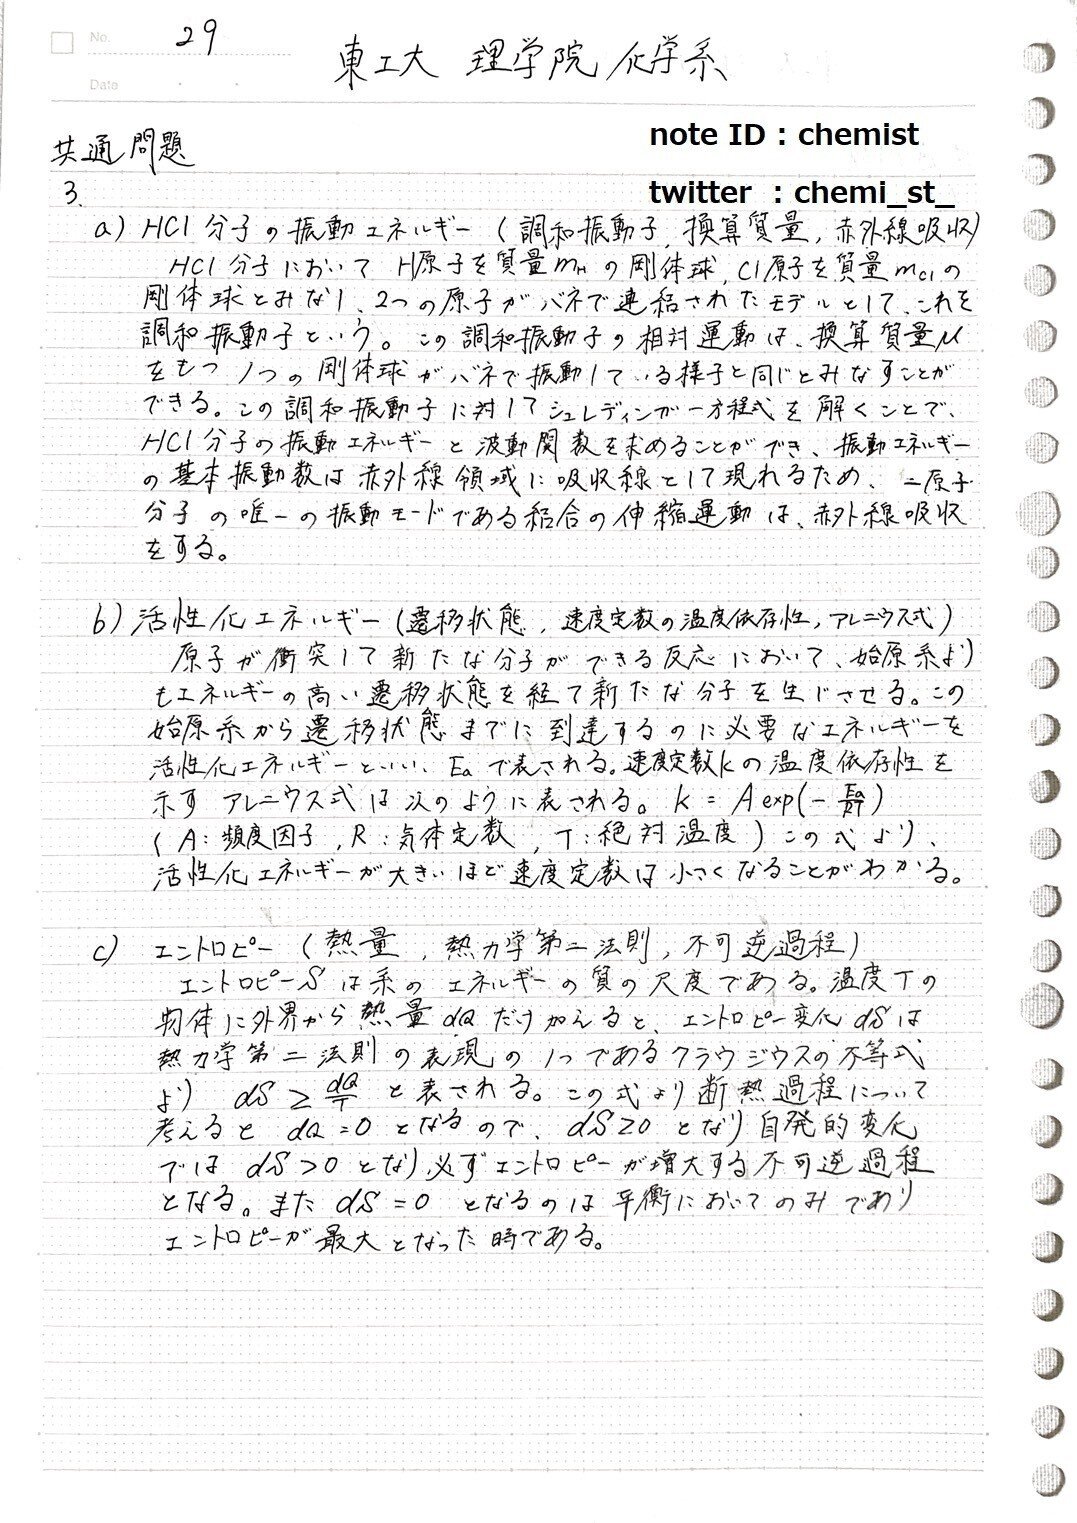 No. 29
Date
東工大 理学院 化学系
note ID : chemist
twitter : chemi_st_
共通問題
3.
a) HCl 分子の振動エネルギー (調和振動子, 換算質量, 赤外線吸収)
HCl 分子において H原子を質量mHの剛体球, Cl原子を質量mClの
剛体球とみなし、2つの原子がバネで連結されたモデルとして、これを
調和振動子という。この調和振動子の相対運動は、換算質量μ
をもつ1つの剛体球がバネで振動している様子と同じとみなすことが
できる。この調和振動子に対してシュレディンガー方程式を解くことで、
HCl分子の振動エネルギーと波動関数を求めることができ、振動エネルギー
の基本振動数は赤外線領域に吸収線として現れるため、二原子
分子の唯一の振動モードである結合の伸縮運動は、赤外線吸収
をする。
b) 活性化エネルギー (遷移状態, 速度定数の温度依存性, アレニウス式)
原子が衝突して新たな分子ができる反応において、始原系より
もエネルギーの高い遷移状態を経て新たな分子を生じさせる。この
始原系から遷移状態までに到達するのに必要なエネルギーを
活性化エネルギーといい、Eaで表される。速度定数kの温度依存性を
示すアレニウス式は次のように表される。k = A exp(-Ea/RT)
(A:頻度因子, R:気体定数, T:絶対温度) この式より、
活性化エネルギーが大きいほど速度定数は小さくなることがわかる。
c) エントロピー (熱量, 熱力学第二法則, 不可逆過程)
エントロピーSは系のエネルギーの質の尺度である。温度Tの
物体に外界から熱量dQだけ加えると、エントロピー変化dSは
熱力学第二法則の表現の1つであるクラウジウスの不等式
より dS ≧ dQ/T と表される。この式より断熱過程について
考えると dQ = 0 となるので、dS≧0 となり自発的変化
では dS > 0 となり必ずエントロピーが増大する不可逆過程
となる。また dS = 0 となるのは平衡においてのみであり
エントロピーが最大となった時である。